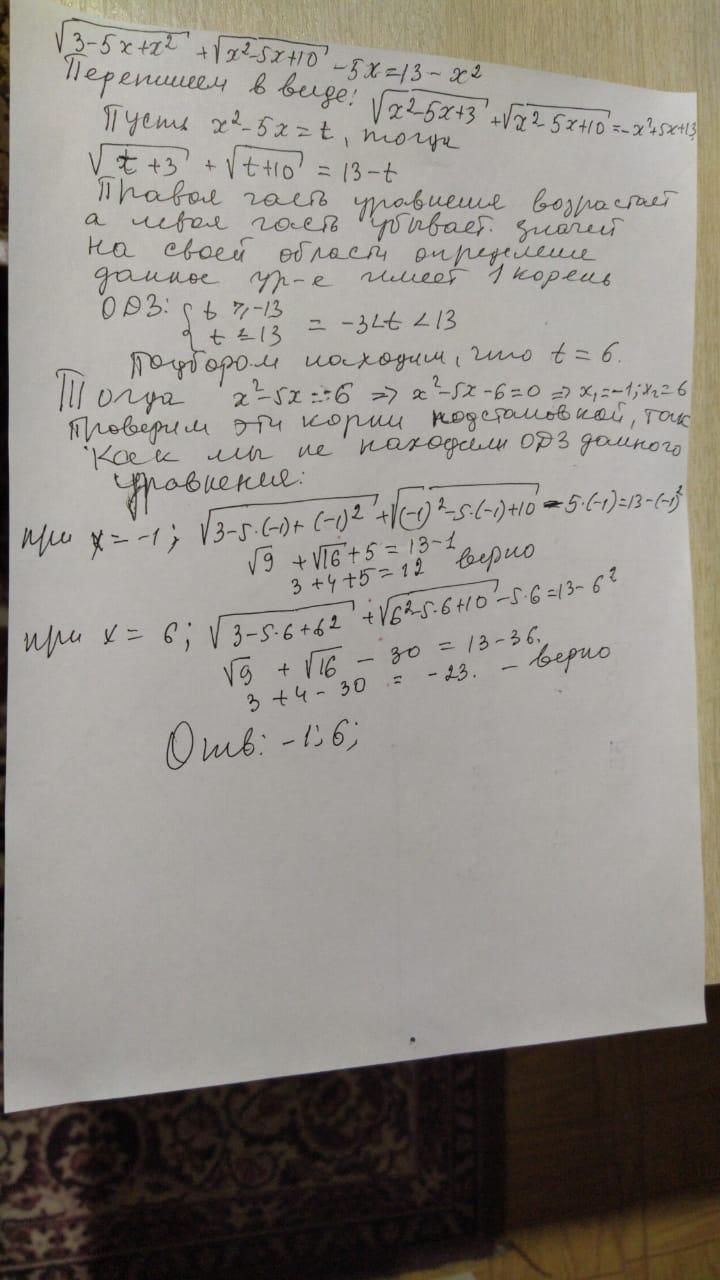 √3-5x+x² + √x²-5x+10 - 5x = 13 - x²
Перепишем в виде: √x²-5x+3 + √x²-5x+10 = -x²+5x+13
Пусть x²-5x = t, тогда
√t+3 + √t+10 = 13-t
Правая часть уравнение возрастает
а левая часть убывает. значит
на своей области определение
данное ур-е имеет 1 корень
ОДЗ: { t ≥ -13
t ≤ 13 = -3<t<13
Подбором находим, что t = 6.
Тогда x²-5x = 6 ⇒ x²-5x-6=0 ⇒ x₁=-1; x₂=6
Проверим эти корни подстановкой, так
как мы не находили ОДЗ данного
уравнения:
при x = -1; √3-5·(-1)+(-1)² + √(-1)²-5·(-1)+10 - 5·(-1) = 13-(-1)²
√9 + √16 + 5 = 13-1
3+4+5 = 12 верно
при x = 6; √3-5·6+6² + √6²-5·6+10 - 5·6 = 13-6²
√9 + √16 - 30 = 13-36.
3 + 4 - 30 = -23. - верно
Отв: -1; 6;